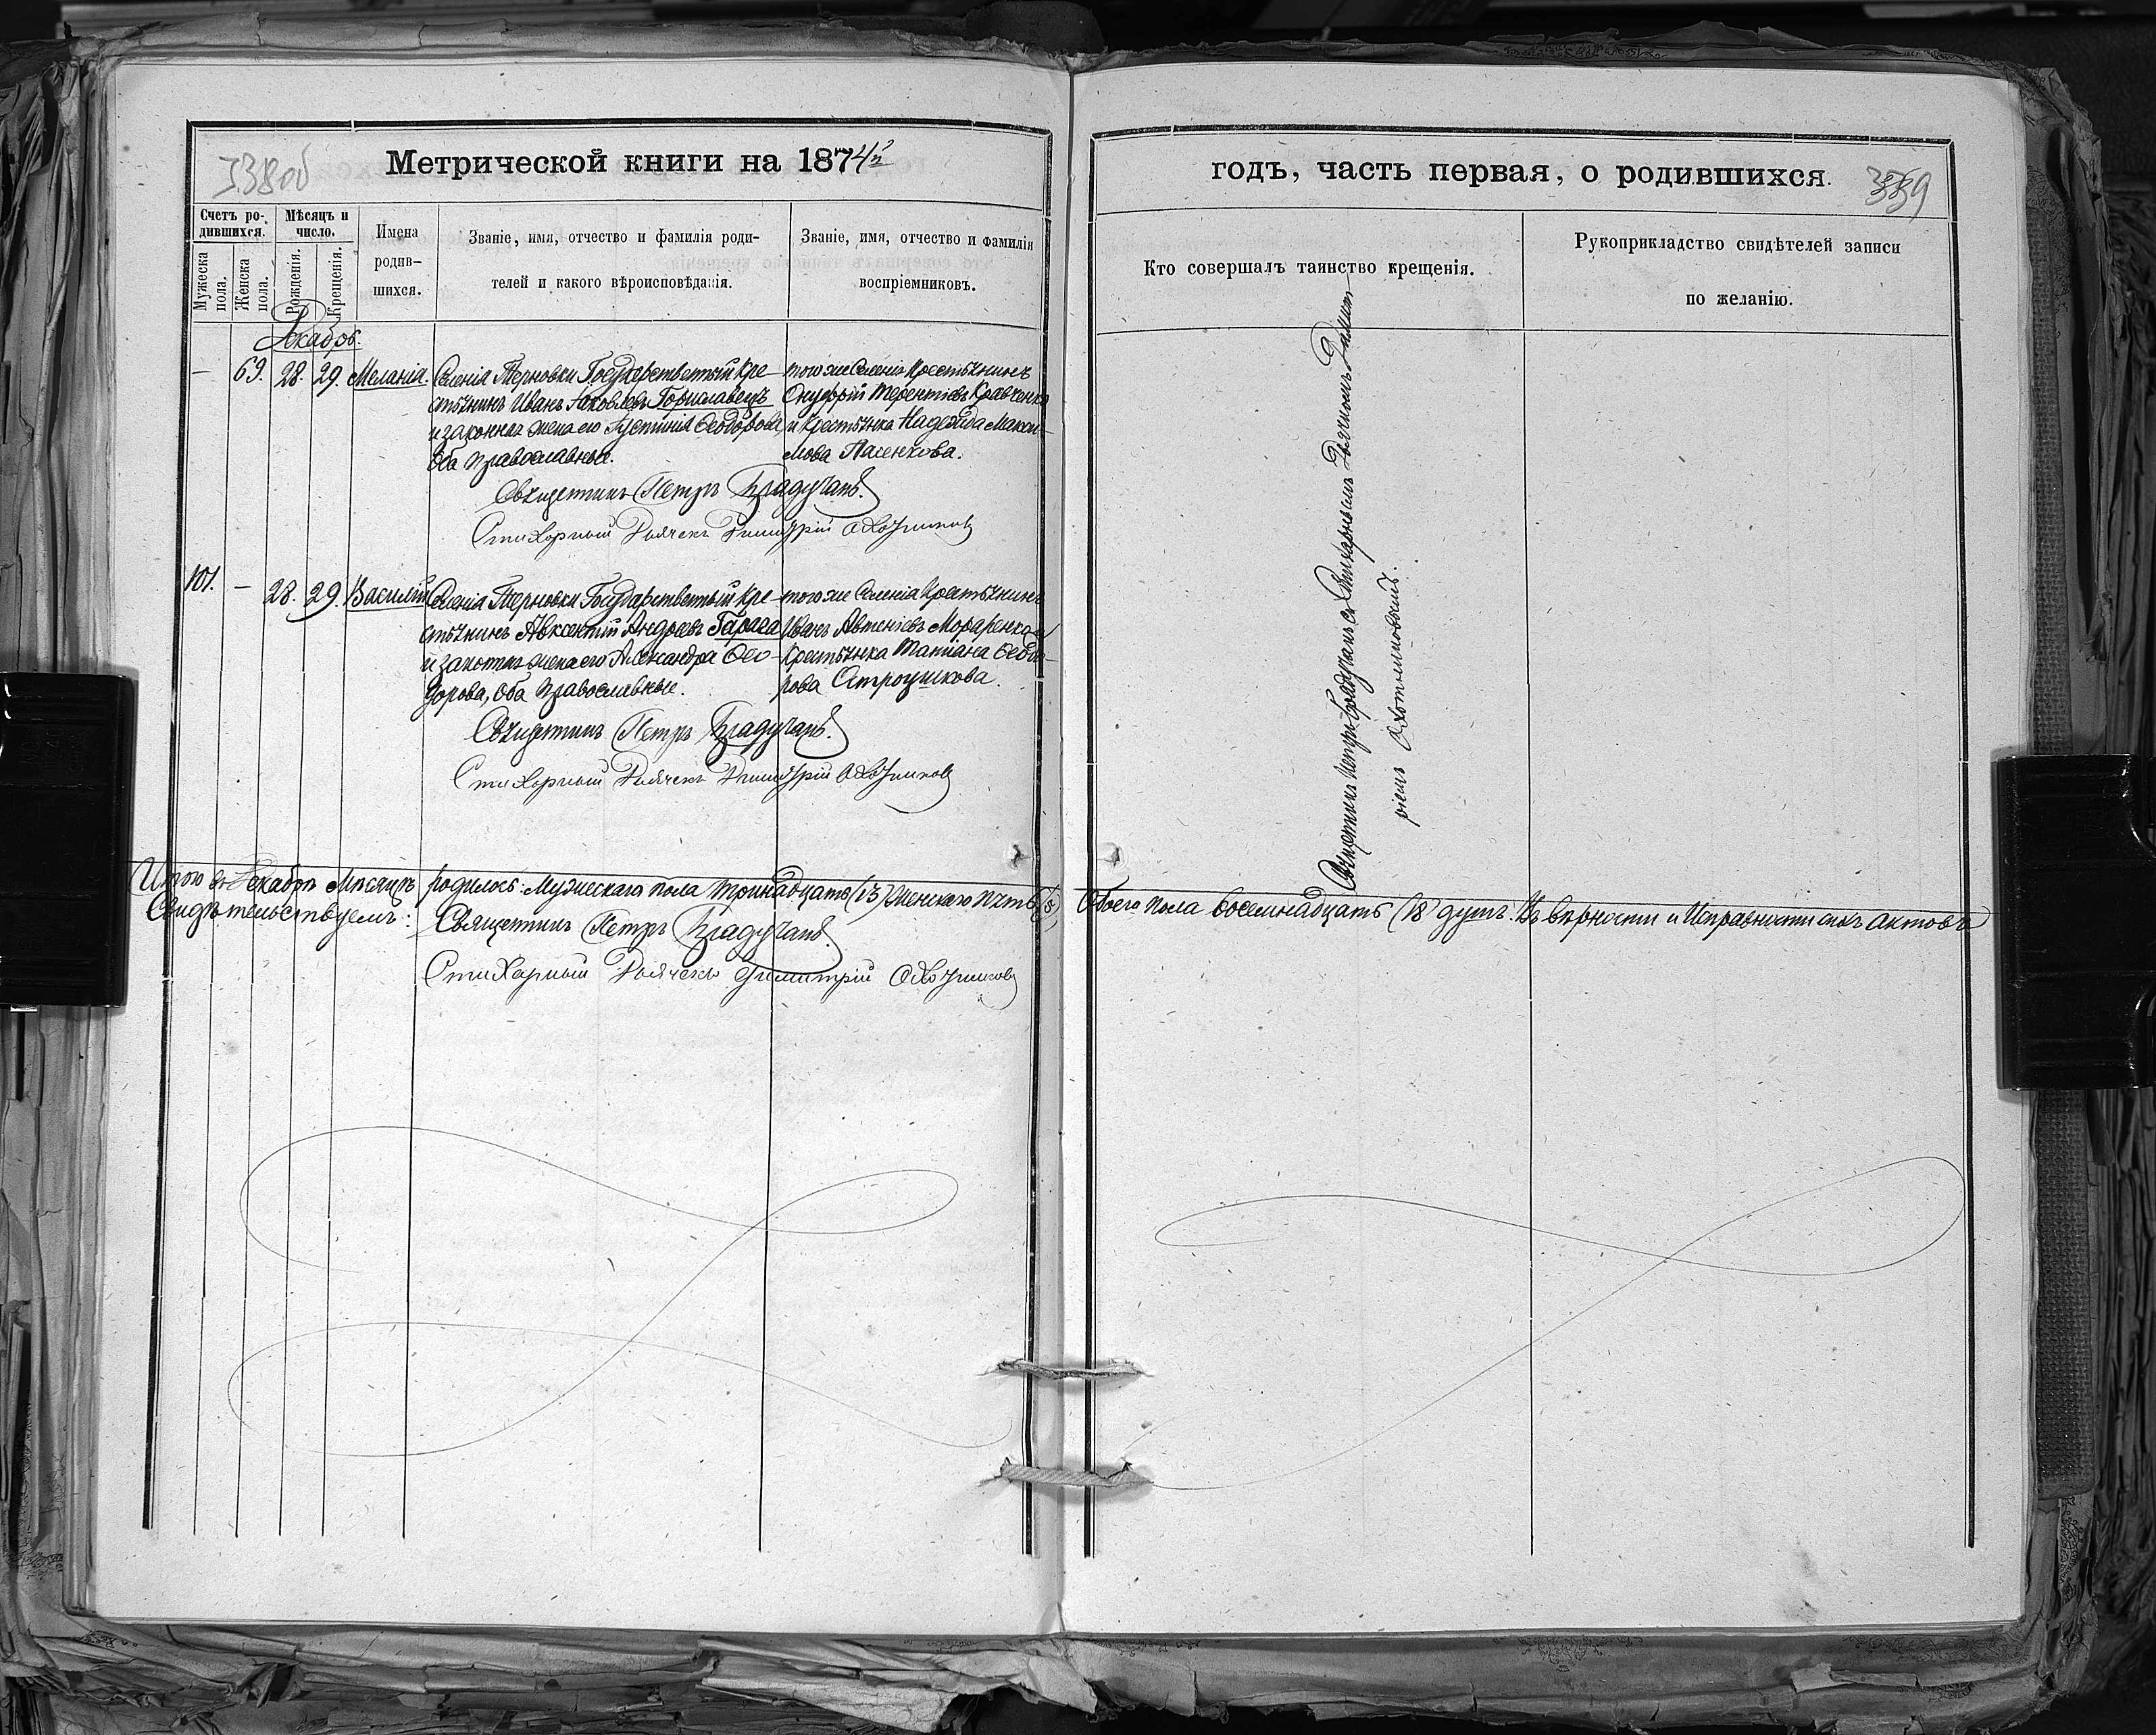 338об
Метрической книги на 1874й
Счетъ ро-
дившихся.
Мужеска
пола.
Женска
пола.
Мѣсяцъ и
число.
Рожденія.
Крещенія.
Имена
родив-
шихся.
Званіе, имя, отчество и фамилія роди-
телей и какого вѣроисповѣданія.
Званіе, имя, отчество и фамилія
воспріемниковъ.
Декабрь.
— 69. 28. 29. Меланія.
Селенія Терновки Государственный Кре-
стьянинъ Иванъ Яковлевъ Гориславецъ
и законная жена его Іустинія Ѳеодорова,
Оба Православные.
того же Селенія Крестьянинъ
Онуфрій Терентіевъ Кравченко
и Крестьянка Надежда Макси-
мова Пасенкова.
Священникъ Петръ
Стихарный Дьячекъ Димитрій Охотниковъ
101. — 28. 29. Василій
Селенія Терновки Государственный Кре-
стьянинъ Авксентій Андреевъ Гарага
и законная жена его Александра Ѳео-
дорова, Оба Православные.
того же Селенія Крестьянинъ
Иванъ и
Крестьянка Татіана Ѳеодо-
рова Строушкова.
Священникъ Петръ
Стихарный Дьячекъ Димитрій Охотниковъ
Итого въ Декабрѣ Мѣсяцѣ родилось: Мужескаго пола тринадцать (13) Женскаго пять (5)
Свидѣтельствуемъ:
Священникъ Петръ
Стихарный Дьячекъ Димитрій Охотниковъ
годъ, часть первая, о родившихся.
339
Кто совершалъ таинство крещенія.
Рукоприкладство свидѣтелей записи
по желанію.
Священникъ Петръ съ Стихарнымъ Дьячкомъ Димит-
ріемъ Охотниковымъ.
Обоего пола восемнадцать (18) душъ. Въ вѣрности и Исправности сихъ актовъ